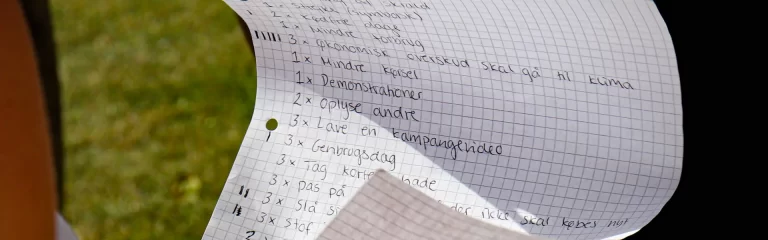 2x Kødfrie dage
1x Mindre forbrug
3x økonomisk overskud skal gå til klima
1x Mindre kørsel
1x Demonstrationer
2x Oplyse andre
3x Lave en kampangevideo
3x Genbrugsdag
3x Tag korte bade
3x pas på
3x slå der ikke skal købes nyt
3x stof
2